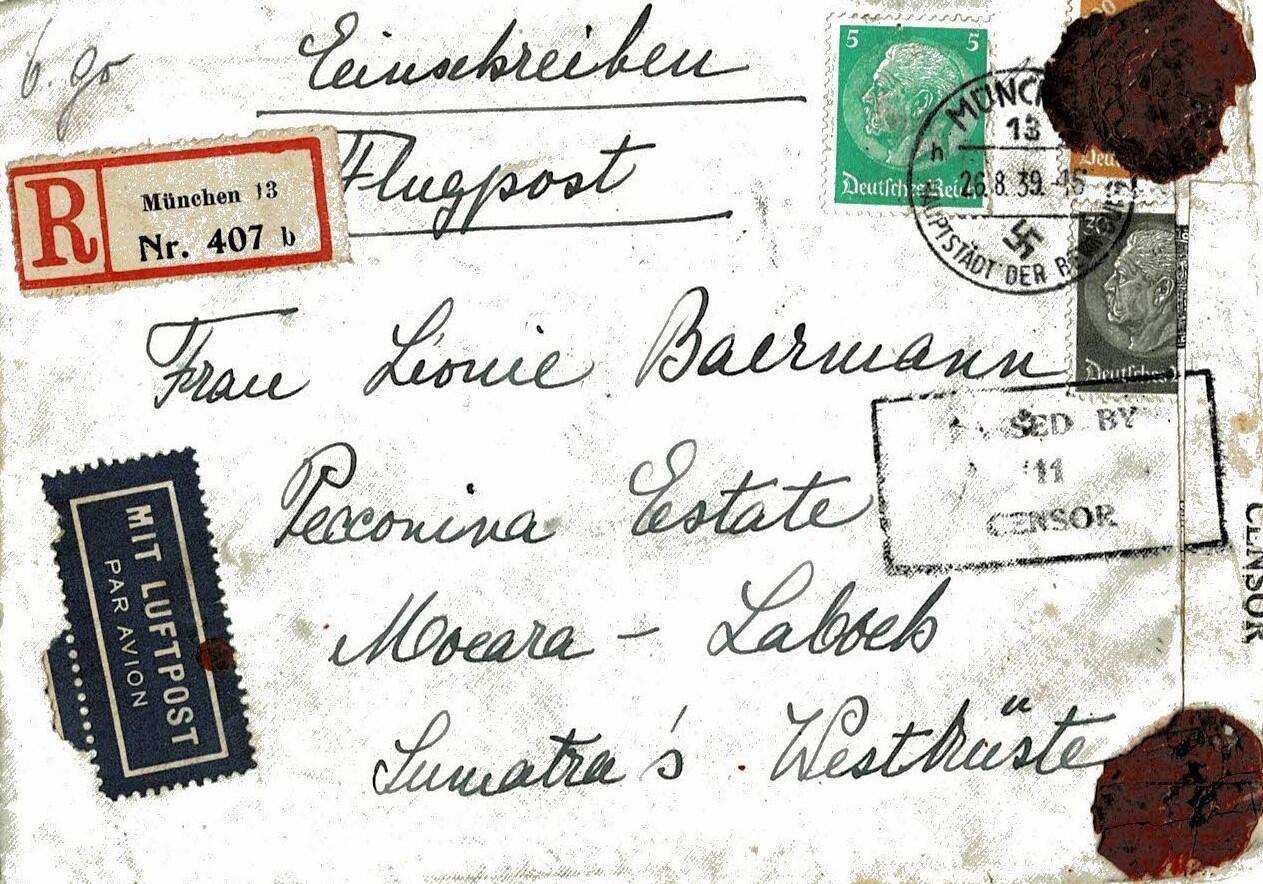 6.90
Einschreiben
Flugpost
R
München 13
Nr. 407 b
5 5
Deutsches Reich
MÜNCH
13
h 26.8.39.-15
HAUPTSTADT DER BEWEGUNG
30
Deutsches
Frau Léonie Baermann
PASSED BY
11
CENSOR
Pecconina Estate
Moeara - Laboeh
Sumatra's Westküste
MIT LUFTPOST
PAR AVION
CENSOR